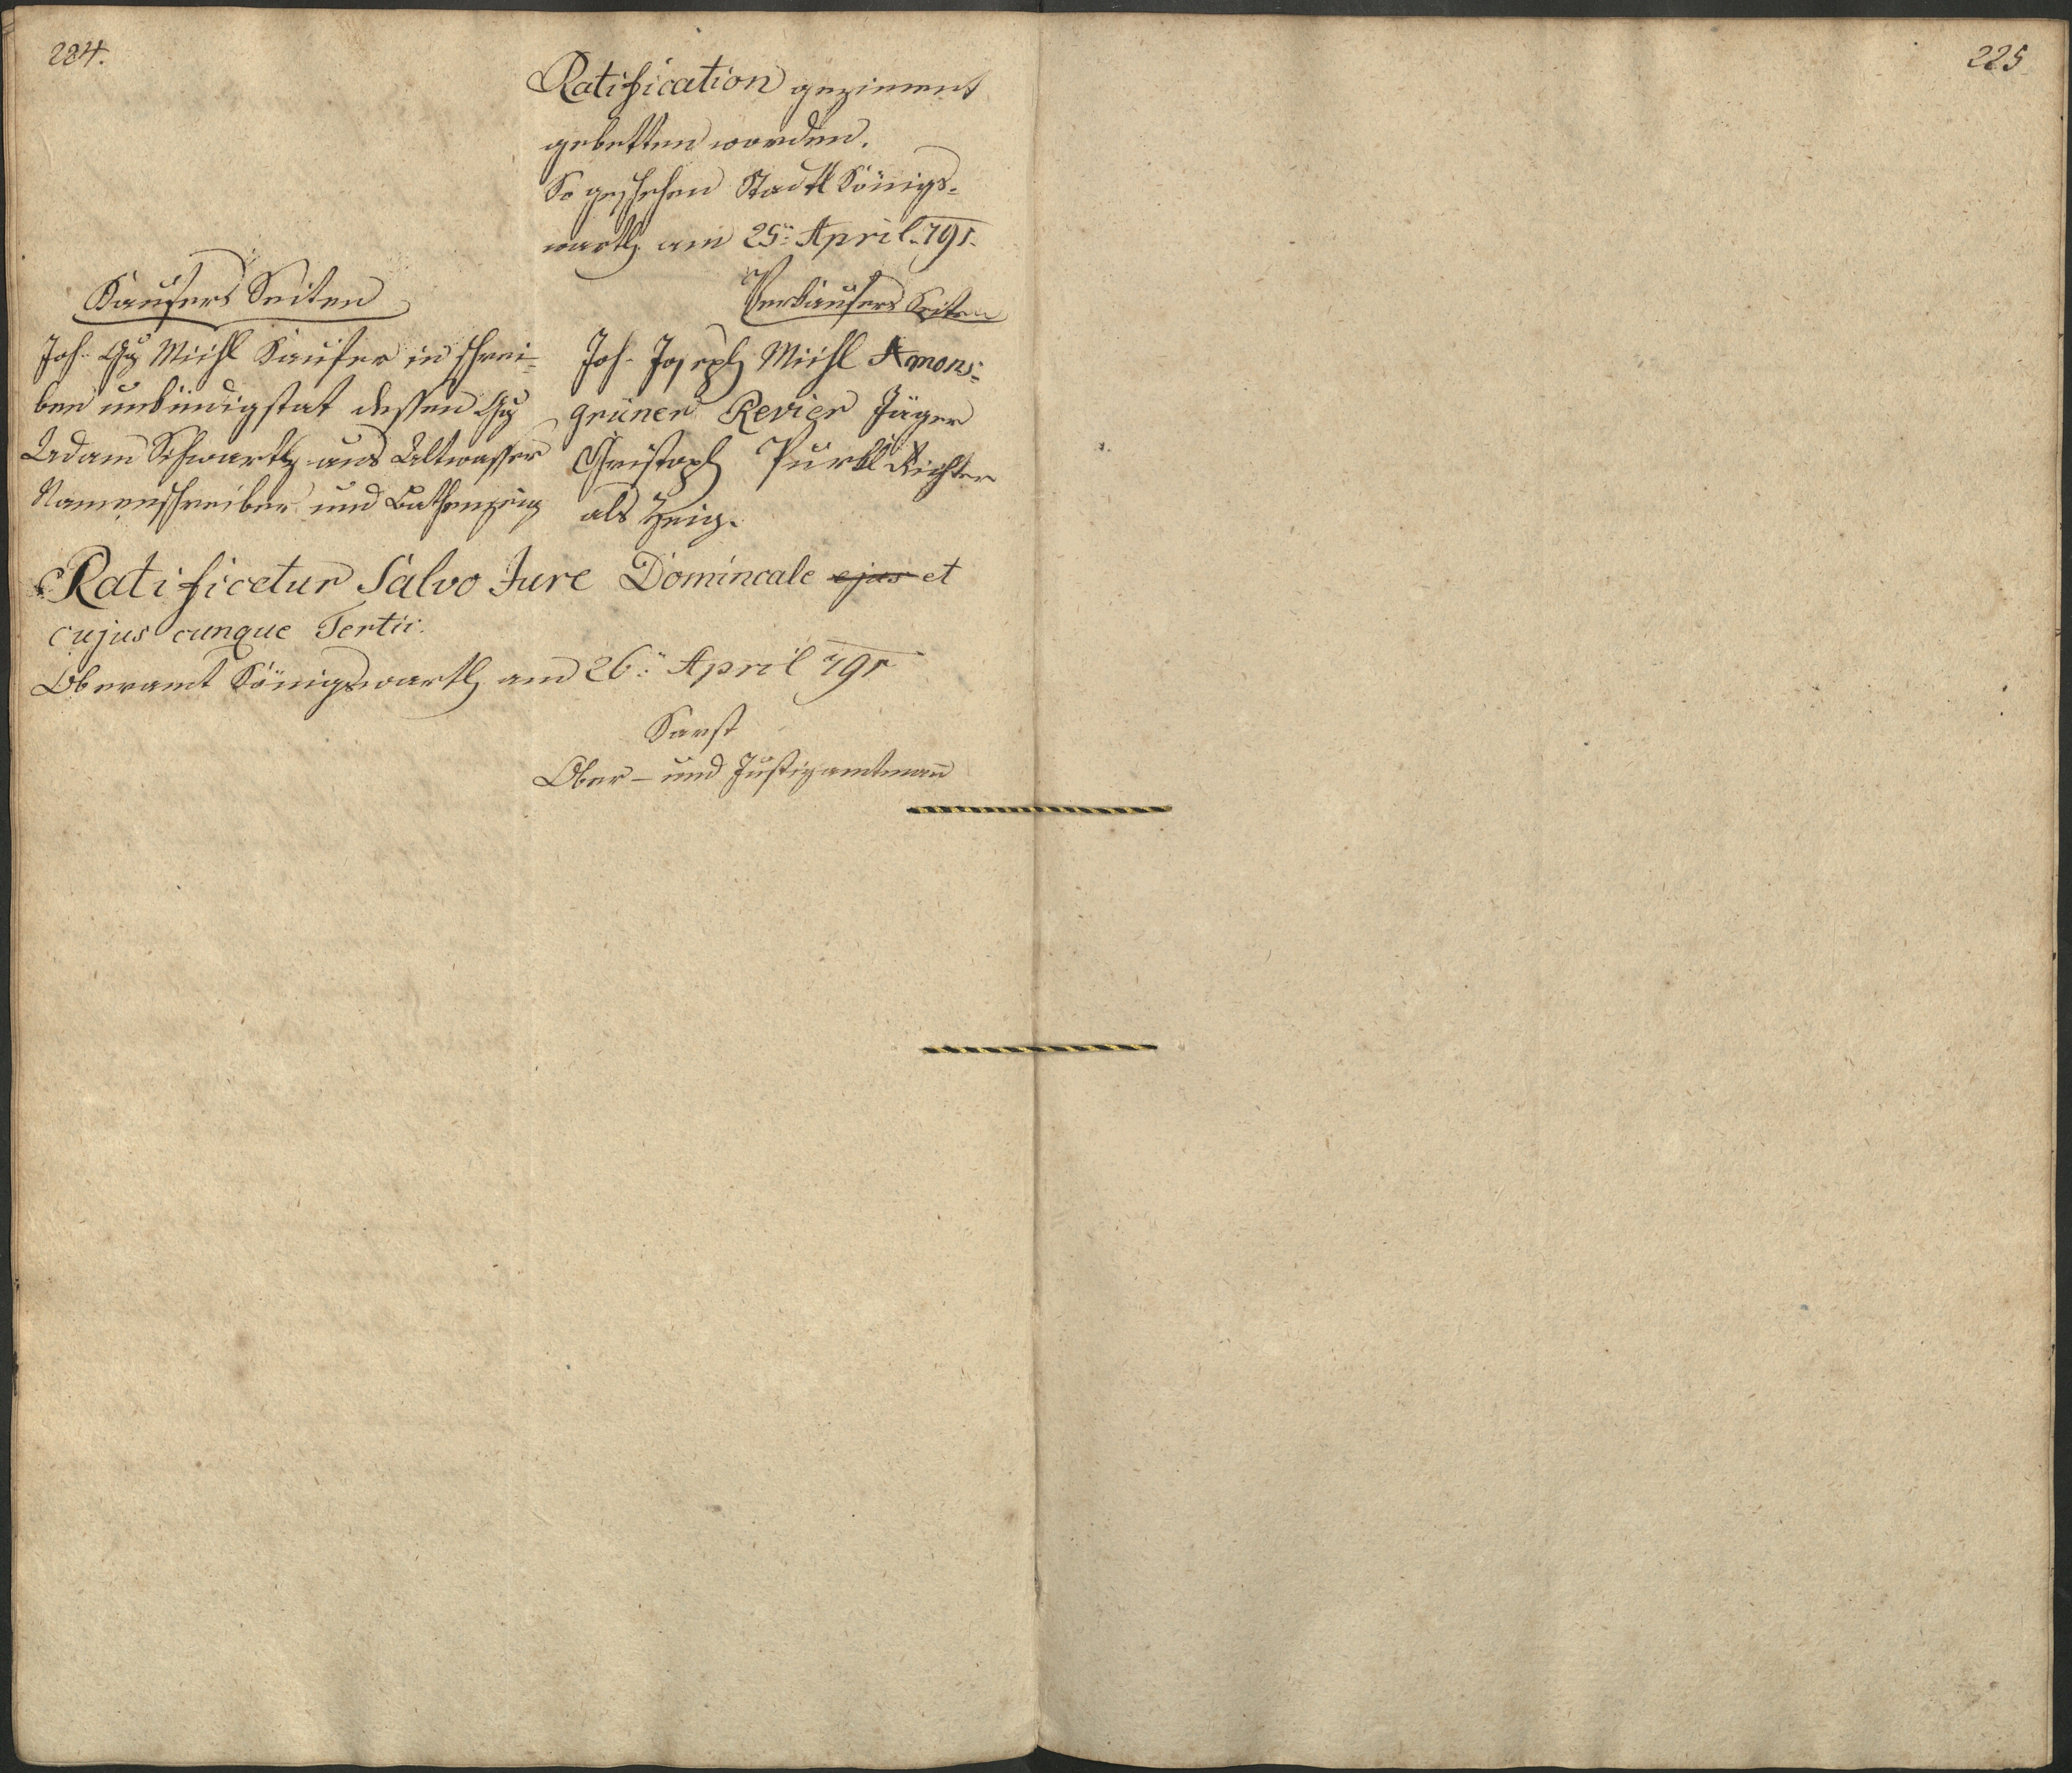 224.
225
Ratification geziement
gebetten worden.
So geschehen Stadtl Königs-
warth am 25: April 791.
Kaufers Seiten
Joh. Gg Michl Kaufer in schrei-
ben unkündigstat dessen Gg
Adam Schwartz aus Altwasser
Namenschreiber und Bethenzeig
Verkaufers Seiten
Joh. Joseph Michl Amons-
grüner Revier Jäger
Christoph Purkl Richter
als Zeig.
Ratificetur Salvo Jure Domincale ejus et
cujus cunque Tertii.
Oberamt Königswarth am 26: April 791
Karst
Ober- und Justizamtmann